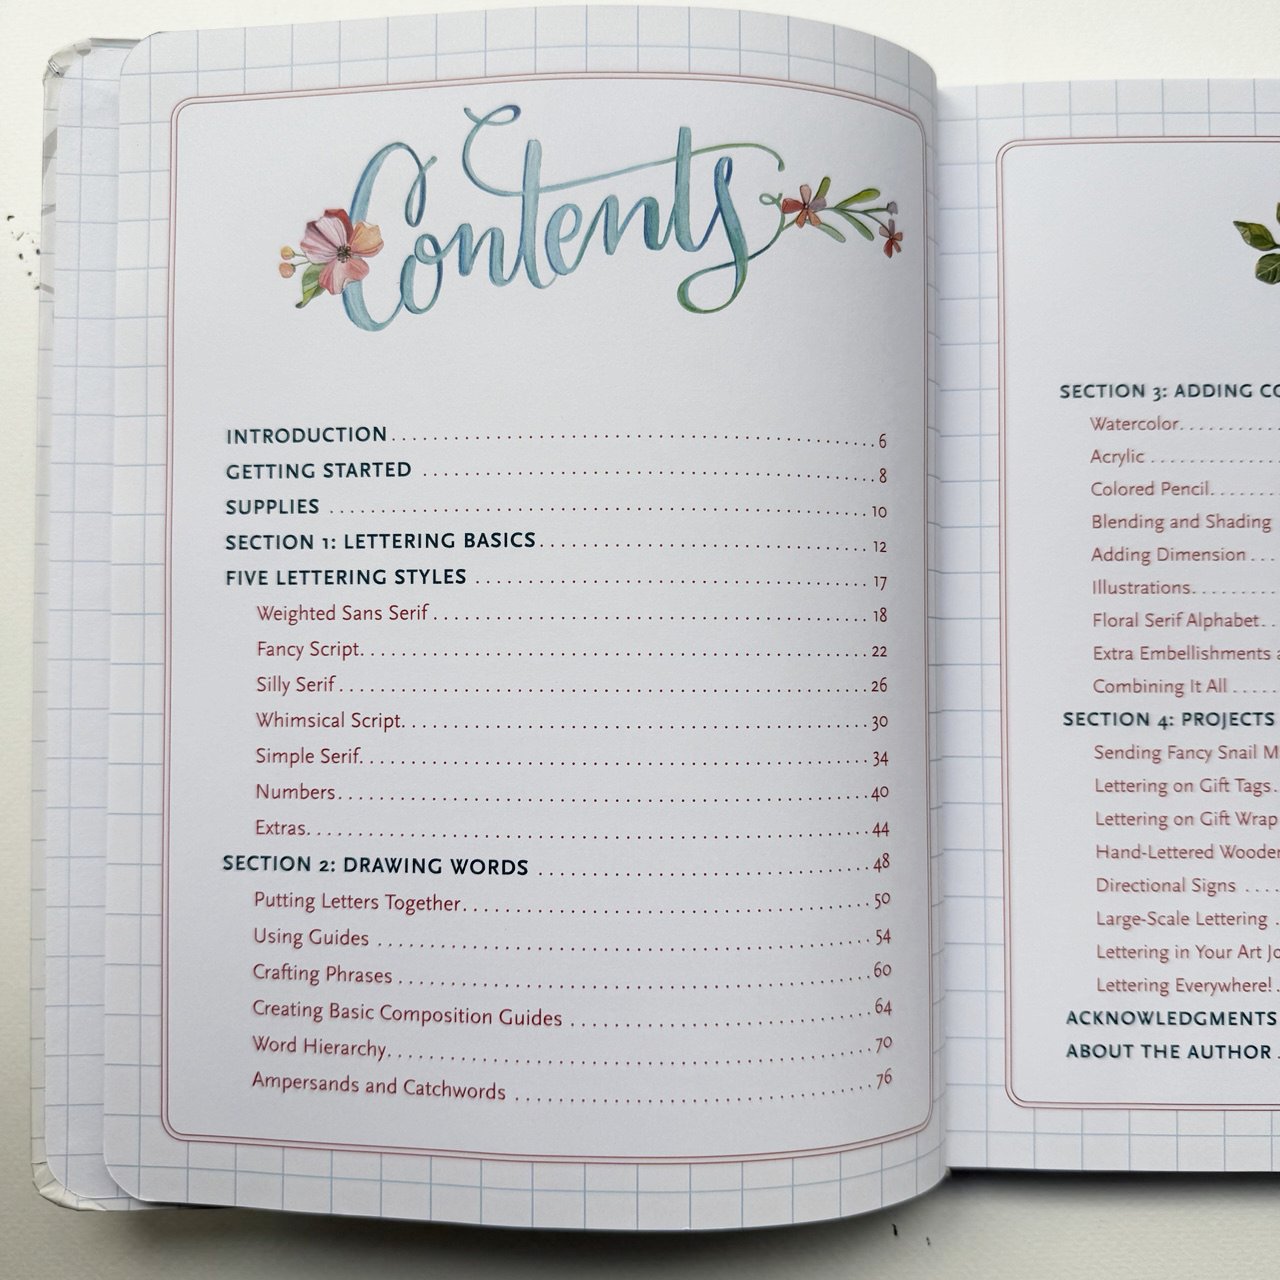 Contents
INTRODUCTION . . . . . . . . . . . . . . . . . . . . . . . . . . . . . . . . . . . . . . . . 6
GETTING STARTED . . . . . . . . . . . . . . . . . . . . . . . . . . . . . . . . . . . . . . . . 8
SUPPLIES . . . . . . . . . . . . . . . . . . . . . . . . . . . . . . . . . . . . . . . . 10
SECTION 1: LETTERING BASICS . . . . . . . . . . . . . . . . . . . . . . . . . . . . . . 12
FIVE LETTERING STYLES . . . . . . . . . . . . . . . . . . . . . . . . . . . . . . . . . . . 17
Weighted Sans Serif . . . . . . . . . . . . . . . . . . . . . . . . . . . . . . . . . . . . . . . 18
Fancy Script . . . . . . . . . . . . . . . . . . . . . . . . . . . . . . . . . . . . . . . . 22
Silly Serif . . . . . . . . . . . . . . . . . . . . . . . . . . . . . . . . . . . . . . . . 26
Whimsical Script . . . . . . . . . . . . . . . . . . . . . . . . . . . . . . . . . . . . . . . . 30
Simple Serif . . . . . . . . . . . . . . . . . . . . . . . . . . . . . . . . . . . . . . . . 34
Numbers . . . . . . . . . . . . . . . . . . . . . . . . . . . . . . . . . . . . . . . . 40
Extras . . . . . . . . . . . . . . . . . . . . . . . . . . . . . . . . . . . . . . . . 44
SECTION 2: DRAWING WORDS . . . . . . . . . . . . . . . . . . . . . . . . . . . . . . 48
Putting Letters Together . . . . . . . . . . . . . . . . . . . . . . . . . . . . . . . . . . . . 50
Using Guides . . . . . . . . . . . . . . . . . . . . . . . . . . . . . . . . . . . . . . . . 54
Crafting Phrases . . . . . . . . . . . . . . . . . . . . . . . . . . . . . . . . . . . . . . . . 60
Creating Basic Composition Guides . . . . . . . . . . . . . . . . . . . . . . . . . . . 64
Word Hierarchy . . . . . . . . . . . . . . . . . . . . . . . . . . . . . . . . . . . . . . . . 70
Ampersands and Catchwords . . . . . . . . . . . . . . . . . . . . . . . . . . . . . . . . 76
SECTION 3: ADDING
Watercolor . . . . . . . .
Acrylic . . . . . . . . . . .
Colored Pencil . . . . . .
Blending and Shading
Adding Dimension . . .
Illustrations . . . . . . . .
Floral Serif Alphabet . .
Extra Embellishments
Combining It All . . . .
SECTION 4: PROJECTS
Sending Fancy Snail
Lettering on Gift Tags .
Lettering on Gift Wrap
Hand-Lettered
Directional Signs . . . .
Large-Scale Lettering .
Lettering in Your Art
Lettering Everywhere! .
ACKNOWLEDGMENTS
ABOUT THE AUTHOR .